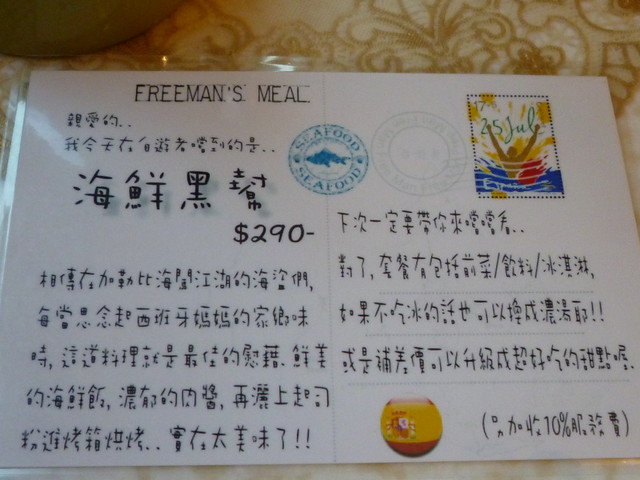 FREEMAN'S MEAL
親愛的..
我今天在自遊者嚐到的是..
海鮮黑幫
$290-
SEAFOOD
SEAFOOD
相傳在加勒比海闖江湖的海盜們,
每當思念起西班牙媽媽的家鄉味
時, 這道料理就是最佳的慰藉. 鮮美
的海鮮飯, 濃郁的肉醬, 再灑上起司
粉進烤箱烘烤.. 實在太美味了!!
25 Jul
下次一定要帶你來嚐嚐看..
對了, 套餐有包括前菜/飲料/冰淇淋,
如果不吃冰的話也可以換成濃湯耶!!
或是補差價可以升級成超好吃的甜點喔.
(另加收10%服務費)